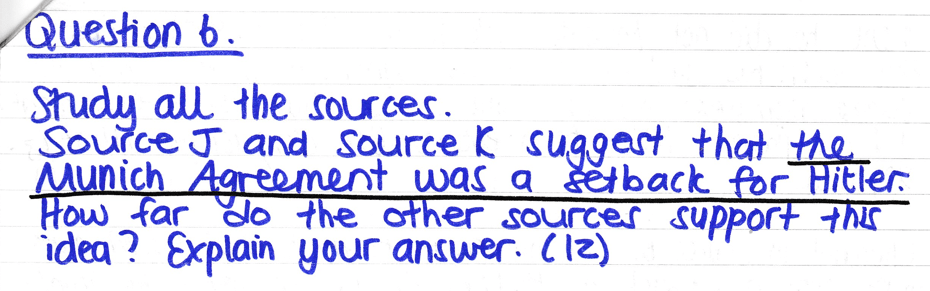 Question 6.
Study all the sources.
Source J and Source K suggest that the
Munich Agreement was a setback for Hitler.
How far do the other sources support this
idea? Explain your answer. (12)